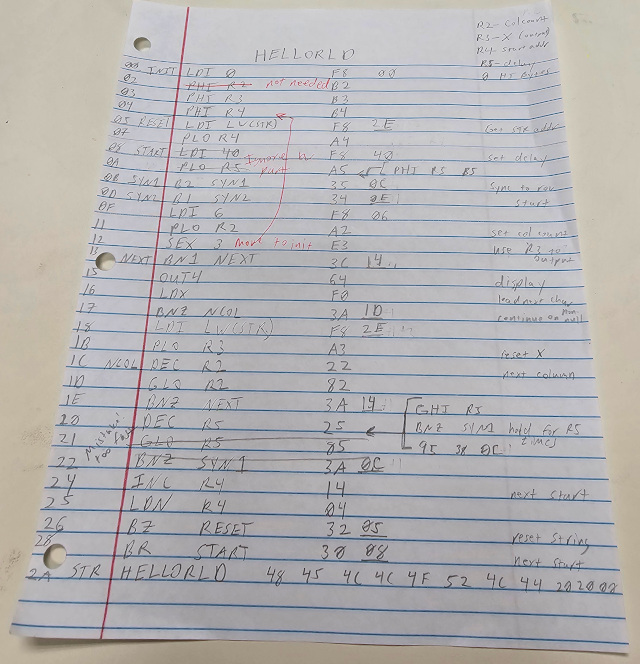 HELLORLD
R2 - Colcount
R3 - X (
R4 - start addr
R5 - delay
0 HI Bytes
00 INIT LDI 0 F8 00
02 PHI R2 not needed B2
03 PHI R3 B3
04 PHI R4 B4
05 RESET LDI LV(STR) F8 2E Get STR addr
07 PLO R4 A4
08 START LDI 40 F8 40 set delay
0A PLO R5 part A5 PHI R5 B5
0B SYN1 B2 SYN1 35 0C Sync to row
0D SYN2 B1 SYN2 34 0E start
0F LDI 6 F8 06
11 PLO R2 A2 set col count
12 SEX 3 move to init E3 use R3 to output
13 NEXT BN1 NEXT 3C 14
15 OUT4 64 display
16 LDX F0 load next char
17 BNZ NCOL 3A 1D continue on non null
18 LDI LV(STR) F8 2E
1B PLO R3 A3 reset X
1C NCOL DEC R2 22 next column
1D GLO R2 82
1E BNZ NEXT 3A 14 GHI R5
20 DEC R5 25 BNZ SYN1 hold for R5 times
21 GLO R5 85 95 3A 0C
22 BNZ SYN1 3A 0C
24 INC R4 14 next start
25 LDN R4 04
26 BZ RESET 32 05 reset string
28 BR START 30 08 next start
2A STR HELLORLD 48 45 4C 4C 4F 52 4C 44 20 20 00